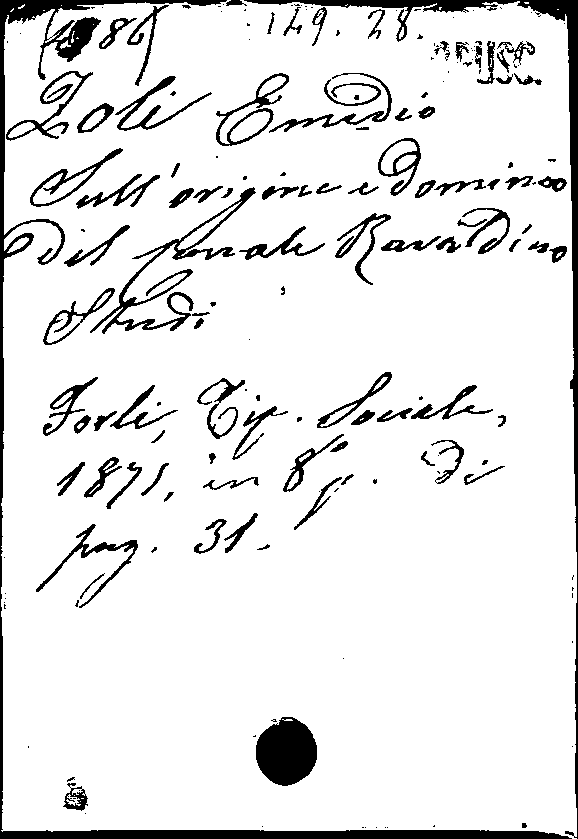 86) 149. 28.
OPUSC.
Zoli Emidio
Sull'origine e dominio
del canale Ravaldino
Studi
Forlì, Tip. Sociale,
1871, in 8º p. di
pag. 31.